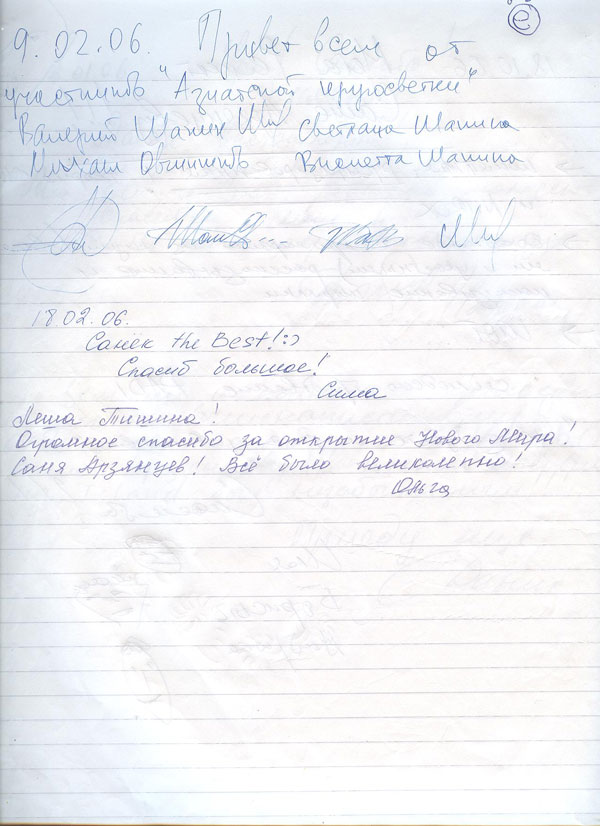 9.02.06. Привет всем от
участников "Азиатской кругосветки"
Валерий Шанин Светлана Шанина
Михаил Овчинников Виолетта Шанина
18.02.06.
Санёк the Best! :)
Спасиб большое!
Сима
Леша Тишина!
Огромное спасибо за открытие Нового Мира!
Саня Арзянцев! Всё было великолепно!
Ольга